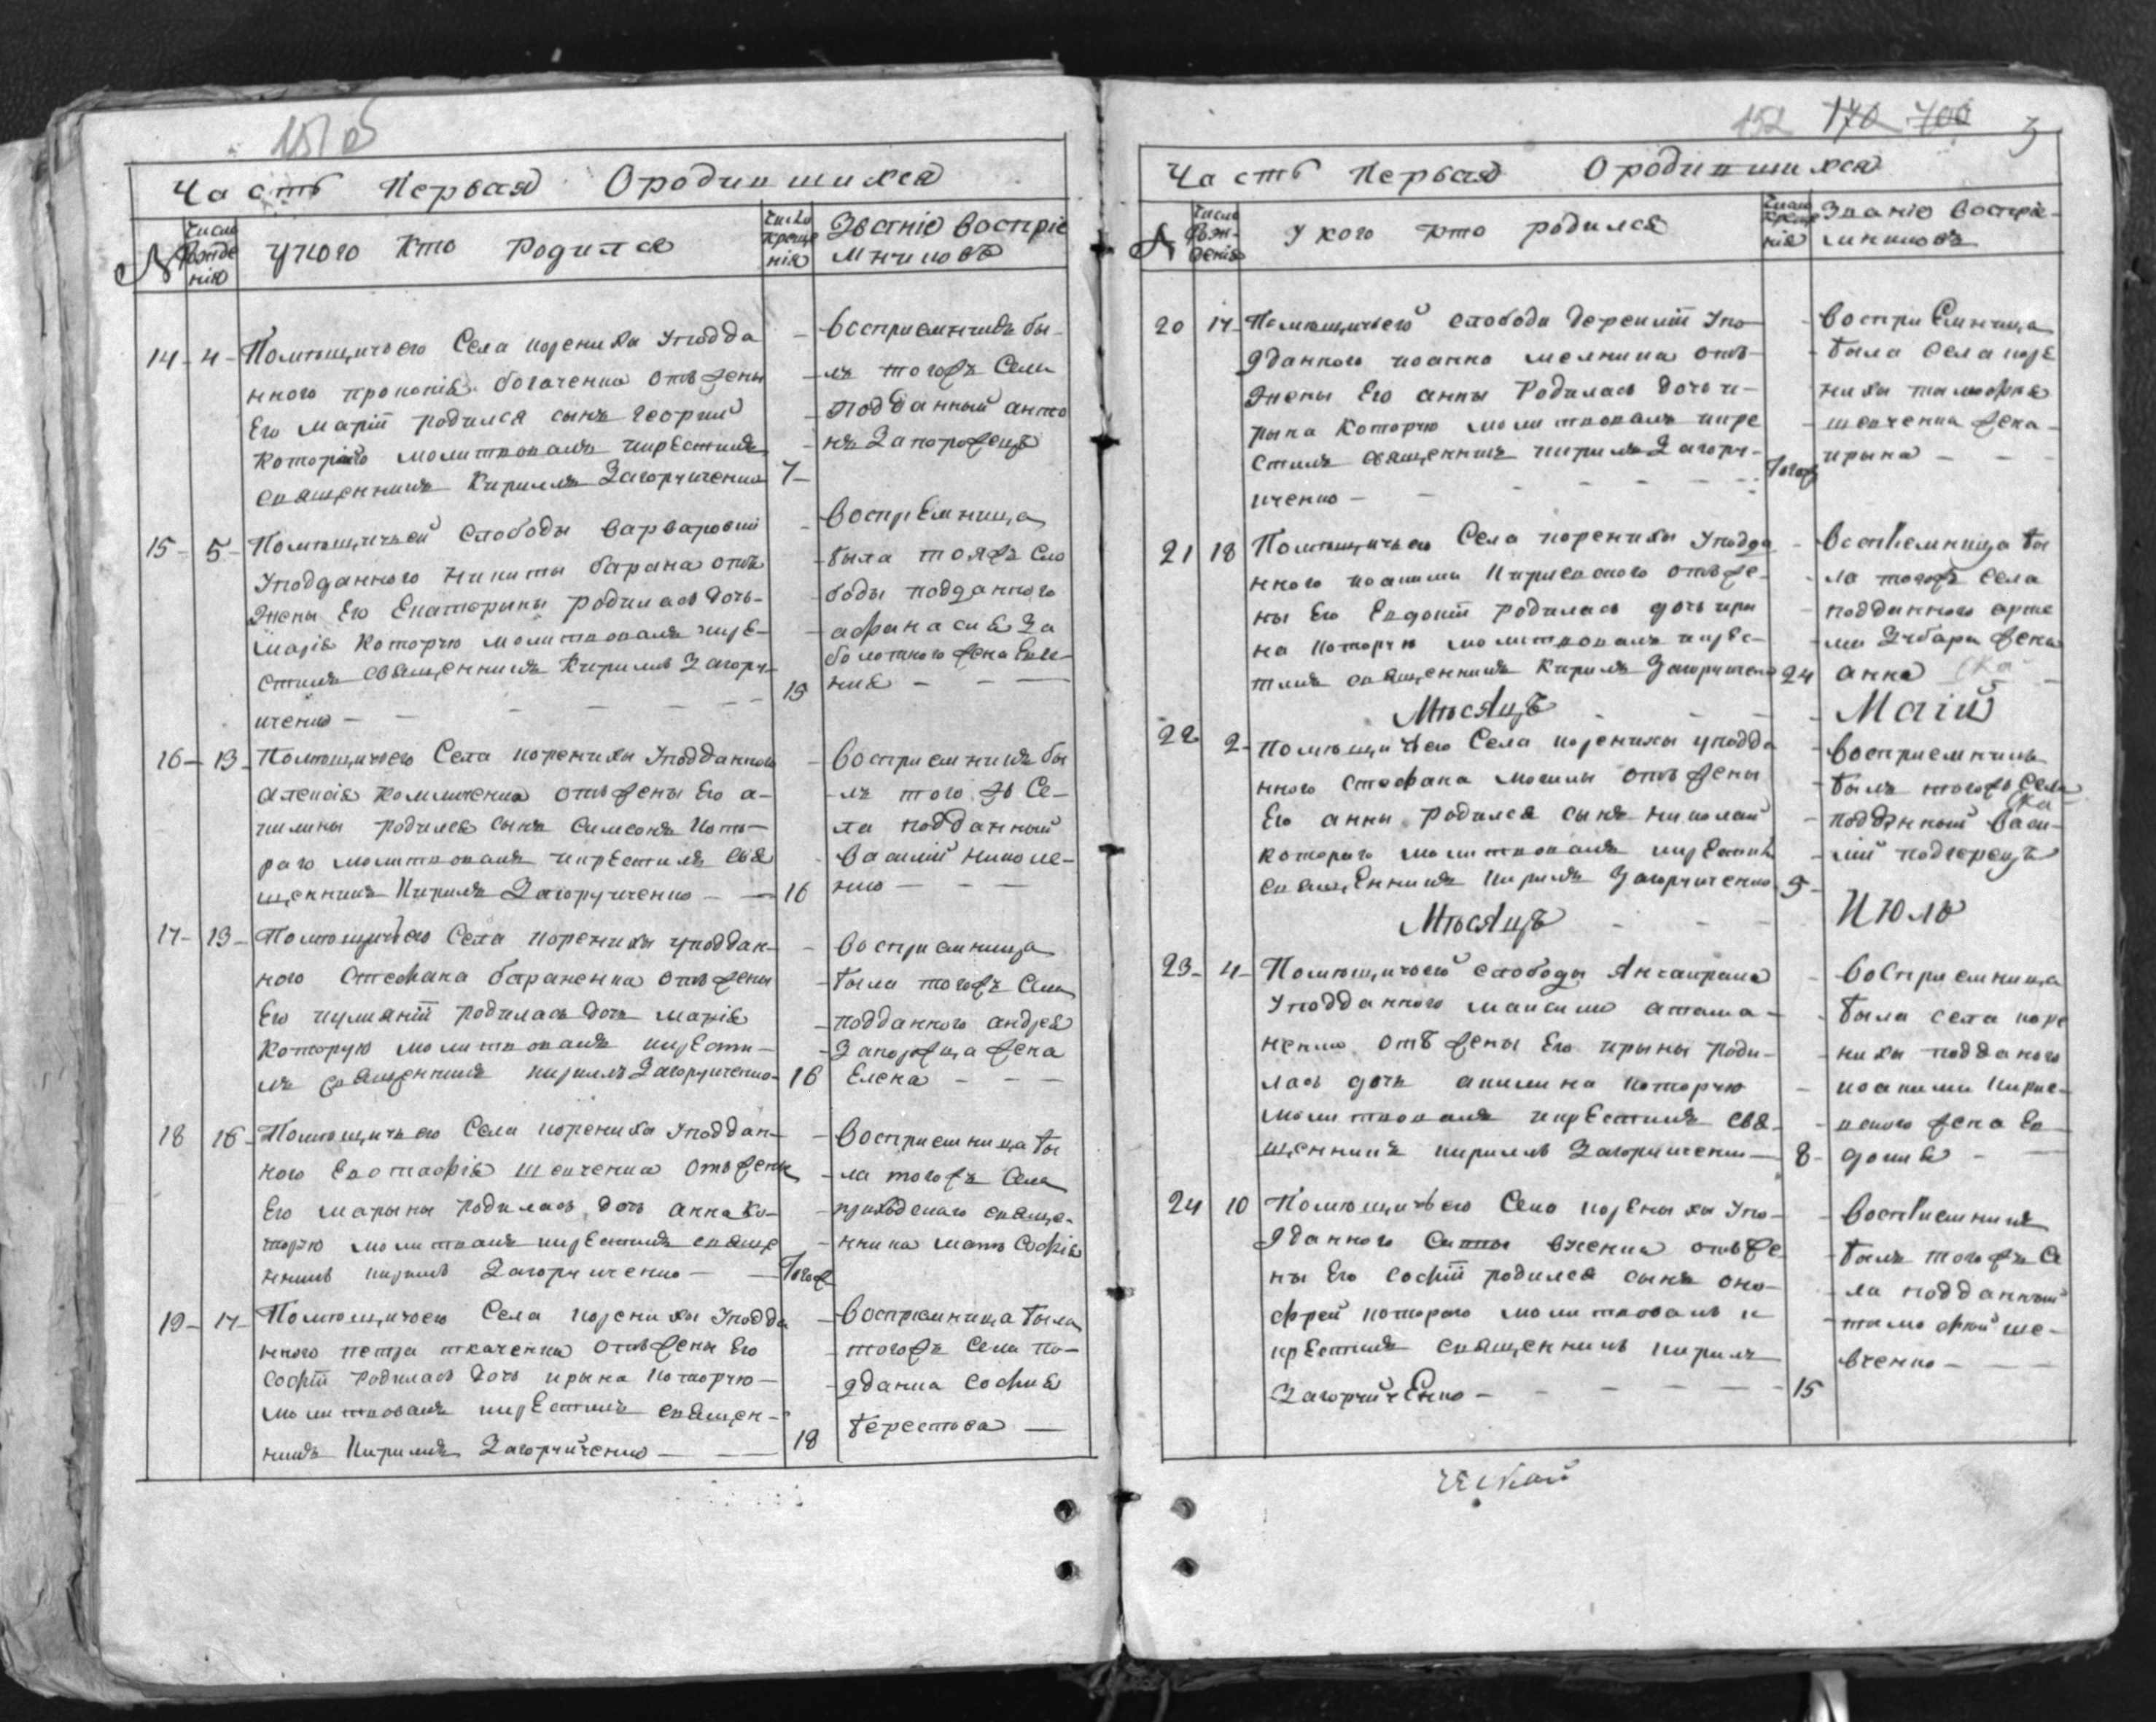 151 об
Часть Первая Ородившихся
№
Число Рожде нія
укого кто родился
Число креще нія
Званіе воспріе мниковъ
14 - 4 - Помѣщичьего Села коренихи Уподда
нного прокопія богаченка отъ жены
Его маріи родился сынъ георгий
которого молитвовалъ икрестилъ
священникъ Кириллъ Загоруйченко 7 -
- Восприемникъ бы
- лъ тогожъ Села
- подданный анто
- нъ Запорожецъ
15 - 5 - Помѣщичьей Слободы варваровки
Уподданного Никиты барана отъ
жены Его Екатерины родилась дочь
марія которую молитвовалъ икре-
стилъ священникъ Кирилъ Загоруй-
ченко - - - - - 15
- воспрЕмница
- была тояжъ Сло
- боды подданного
- афанасия За
болотного жена Евге-
ния - - -
16 - 13 - Помѣщичьего Села коренихи Уподданного
алексія отъ жены Его а-
килины родился сынъ симеонъ кото-
раго молитвовалъ икрестилъ свя
щенникъ Кирилъ Загоруйченко - - 16
- восприемникъ бы
- лъ того жъ Се-
- ла подданный
- василий
нко - - -
17 - 13 - Помѣщичьего Села коренихи уподдан-
ного Стефана бараненка отъ жены
Его иулианіи родилась дочь марія
которую молитвовалъ икрести-
лъ священникъ кириллъ Загоруйченко - 16
- восприемница
- была тогожъ Села
- подданного андрея
- Запорожца жена
Елена - - -
18 16 - Помѣщичьего Села коренихи Уподдан-
ного Евстафія шевченка отъ жены
Его марыны родилась дочь анна ко-
торую молитвовалъ икрестилъ свяще
нникъ кирилъ Загоруйченко - - Тогож
- Восприемница бы
- ла тогожъ Села
- приходского свяще-
- нника мать Софія
19 - 17 - Помѣщичьего Села коренихи Уподда
нного петра ткаченка отъ жены Его
Софіи родилась дочь ирына которую -
молитвовалъ икрестилъ священ-
никъ Кирилъ Загоруйченко - - 18
- воспрiемница была
- тогожъ Села по-
- дданна София
берестова -
152 170 700 3
Часть Первая Ородившихся
№
Число Рож- денія
У кого кто родился
Число креще нія
Званіе воспріе- мниковъ
20 17 - Помѣщичьего слободы Упо-
дданного иоанна мелника отъ
жены Его анны Родилась дочь и-
рына которую молитвовалъ икре
стилъ священникъ кирилъ Загоруй-
ченко - - - - - - Тогож
- восприЕмница
- была Села коре
нихи тимофея
- шевченка жена -
- ирына - - -
21 18 Помѣщичьего Села коренихи Уподда
нного иоакима отъ же-
ны Его Евдокіи родилась дочь ири
на которую молитвовалъ икрес-
тилъ священникъ Кирилъ Загоруйченко 24
- воспrиемница бы
- ла тогожъ Села
- подданного арте
- ми жена
анна
Мѣсяцъ - - - Маій
22 2 - помѣщичьего Села коренихи уподда
нного Стефана могилы отъ жены
Его анны родился сынъ николай
которого молитвовалъ икрестилъ
священникъ кирилъ Загоруйченко 9 -
- восприемникъ
- былъ тогожъ Села
- подданный васи-
- лий подгорецъ
Мѣсяцъ - - - Июль
23 - 4 - Помѣщичьего слободы
Уподданного максима атама-
ненка отъ жены Его ирыны роди-
лась дочь акилина которую
молитвовалъ икрестилъ свя-
щенникъ кириллъ Загоруйченко - 8 -
- восприемница
- была села коре
- нихи подданого
- иоакима
- жена Ев
- докия - -
24 10 Помѣщичьего Села коренихи Упо-
дданного отъ же
ны Его Софіи родился сынъ оно-
фрей которого молитвовалъ и
крестилъ священникъ кирилъ
Загоруйченко - - - - - 15
- восприемникъ
- былъ тогожъ Се
- ла подданный
- тимофей ше-
вченко - -